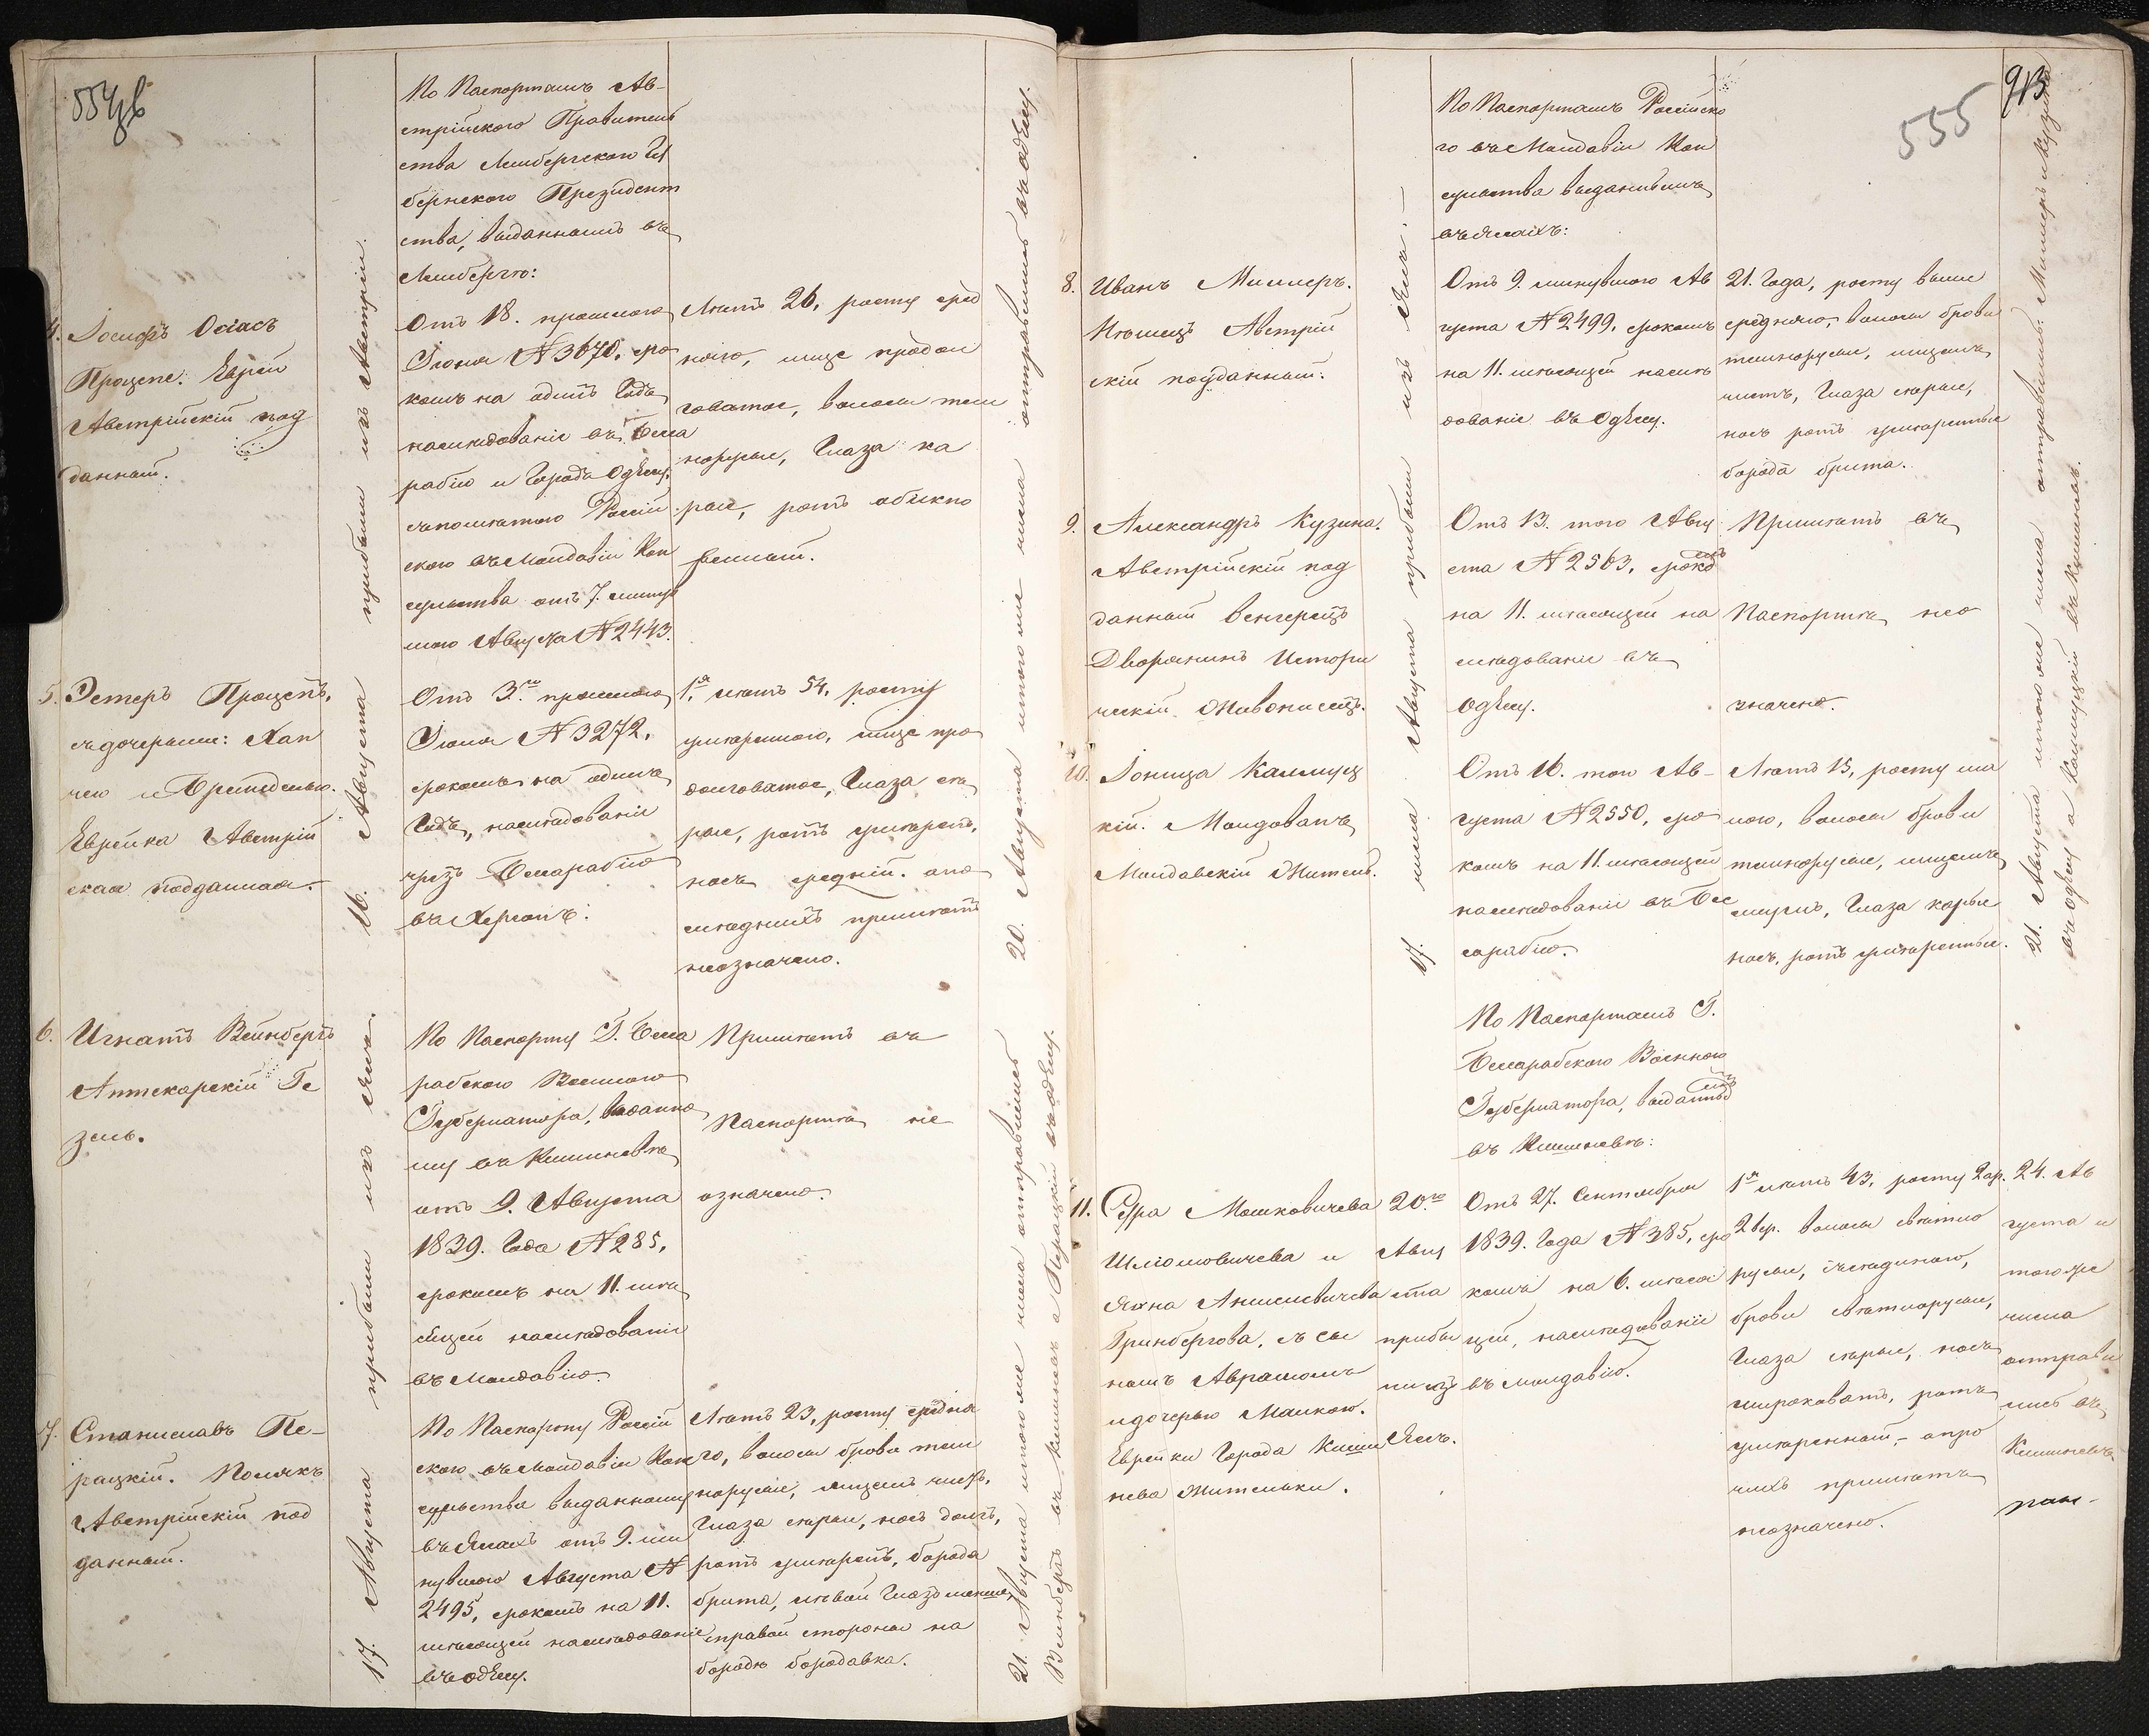 554об
По Паспортамъ Ав-
стрійского Правитель
ства Лембергского Гу
бернского Президент
ства, выданнымъ въ
Лемберге:
4. Іосифъ Осіасъ
Процепе. Еврей
Австрійскій под
данный.
16. Августа прибыли изъ Австріи.
Отъ 18. прошлого
Іюня №3670, сро
комъ на одинъ Годъ
наследованіе въ Бесса
рабію и Города Одессу,
ского въ Молдавіи Кон
сульства отъ 7. минув
шого Августа №2443.
Летъ 26, росту сред
няго, лице продол
говатое, волосы тем
норусые, Глаза ка
рые, ротъ обыкно
венный.
20. Августа итого же числа отправились въ Одессу.
5. Эстеръ Процепъ,
съ дочерьми: Хан
Еврейка Австрій
ская подданная.
Отъ 3го прошлого
Іюня №3272,
срокомъ на одинъ
Годъ, наследованіе
чрезъ Бессарабію
въ Херсонъ:
1я летъ 54, росту
умеренного, лице про
долговатое, Глаза се
рые, ротъ умерень,
носъ средній. апо
следнихъ приметъ
неозначено.
6. Игнатъ Вейнбергъ
Аптекарскій Ге
зель.
17. Августа прибыли изъ Яссъ.
По Паспорту Г. Бесса
рабского Военного
Губернатора, выданно
му въ Кишиневе
отъ 9. Августа
1839. Года №285,
срокомъ на 11. ме
сяцей наследованіе
въ Молдавію.
Приметъ въ
Паспорте не
означено.
21. Августа итого же числа отправились
Вейнбергъ въ Кишиневъ а Перацкій въ Одессу.
7. Станиславъ Пе-
рацкій. Полякъ
Австрійскій под
данный.
По Паспорту Россій
ского въ Молдавіи Кон
сульства выданному
въ Яссахъ отъ 9. ми
нувшого Августа №
2495, срокомъ на 11.
месяцей наследованіе
въ Одессу.
Летъ 23, росту средня
го, волосы брови тем
норусые, лицемъ чистъ,
Глаза серые, носъ долгъ,
ротъ умеренъ, борода
брита, левый Глазъ меньше,
справой стороны на
бороде бородавка.
555
913
По Паспортамъ Россійско
го въ Молдавіи Кон
сульства выданнымъ
въ Яссахъ:
8. Иванъ Миллеръ.
Немецъ Австрій
скій подданный.
17. числа Августа прибыли изъ Яссъ. —
Отъ 9. минувшого Ав
густа №2499, срокомъ
на 11. месяцей наслe
дованіе въ Одессу.
21. Года, росту выше
средняго, волосы брови
темнорусые, лицемъ
чистъ, Глаза серые,
носъ ротъ умеренные
борода брита.
21. Августа итого же числа отправились: Миллеръ и Кузина
въ Одессу а Калмуцкій въ Кишиневъ.
9. Александръ Кузина.
Австрійскій под
данный Венгерецъ
Дворянинъ Истори
ческій Живописецъ.
Отъ 13. того Авгу
ста №2563, срокомъ
на 11. месяцей на
следованіе въ
Одессу.
Приметъ въ
Паспорте нео
значено.
10. Іоница Калмуц
кій. Молдованъ
Молдавскій Житель.
Отъ 16. того Ав-
густа №2550, сро
комъ на 11. месяцей
наследованіе въ Бес
сарабію.
Летъ 15, росту ма
лого, волосы брови
темнорусые, лицемъ
смуглъ, Глаза карые
носъ, ротъ умеренные.
По Паспортамъ Г.
Бессарабского Военного
Губернатора, выданнымъ
въ Кишиневе:
11. Сурра Мошковичева
Шліомовичева и
Яхна Аншелевичева
Гринбергова, съ сы
номъ Аврамомъ
идочерью Малкою.
Еврейки Города Киши
нева Жительки.
20.го
Авгу
ста
прибы
ли изъ
Яссъ.
Отъ 27. Сентября
1839. Года №385, сро
комъ на 6. меся
цей, наследованіе
въ Молдавію.
1я летъ 43, росту 2ар.
2вер. волосы светло
русые, съседыною,
брови светлорусые,
Глаза серые, носъ
широковатъ, ротъ
умеренный, - апро
чихъ приметъ
неозначено.
24. Ав
густа и
того же
числа
отправи
лись въ
Кишиневъ